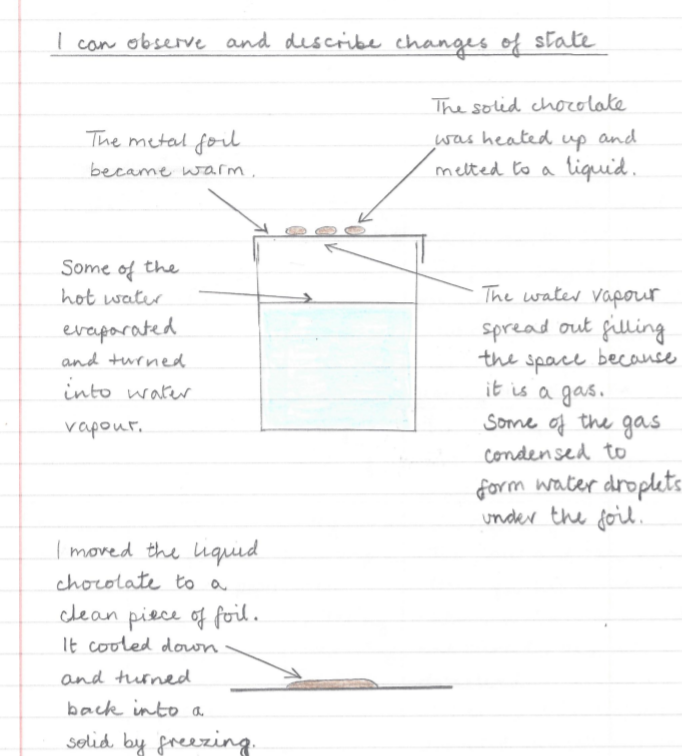 I can observe and describe changes of state
The solid chocolate
was heated up and
melted to a liquid.
The metal foil
became warm.
Some of the
hot water
evaporated
and turned
into water
vapour.
The water vapour
spread out filling
the space because
it is a gas.
Some of the gas
condensed to
form water droplets
under the foil.
I moved the liquid
chocolate to a
clean piece of foil.
It cooled down
and turned
back into a
solid by freezing.